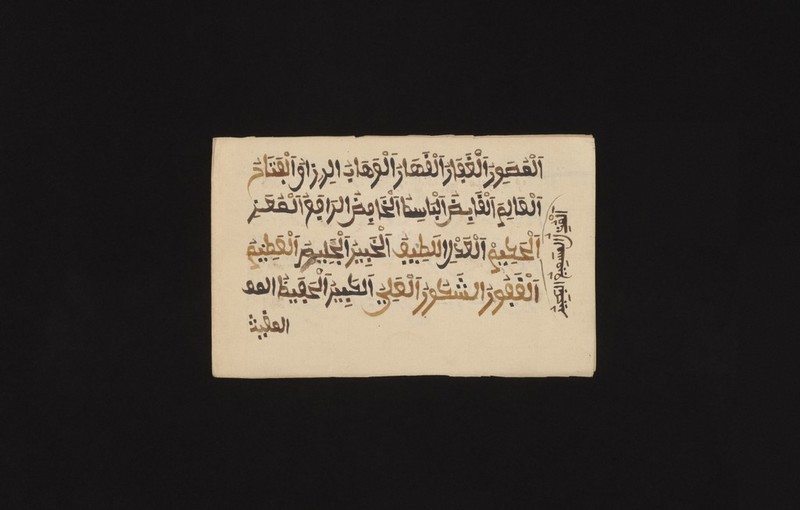 اَلْمُصَوِرُ اَلْغَفَارُ اَلْقَهَارُ اَلْوَهَابُ الرزاقُ اَلْفَتَاحُ
اَلْعَالِمُ اَلْقَابِضُ اَلْبَاسِطُ اَلْخَافِضُ الرَافِعُ اَلْمُعِزُ
اَلْحَكِيمُ اَلْعَدْلُ اللَطِيفُ اَلْخَبِيرُ اَلْحَلِيمُ اَلْعَظِيمُ
اَلْغَفُورُ الشَكُورُ اَلْعَلِيُ اَلكَبِيرُ اَلْحَفِيظُ المف
المقيت
اَلْمُذِلُ السَمِيعُ البَصِيرُ